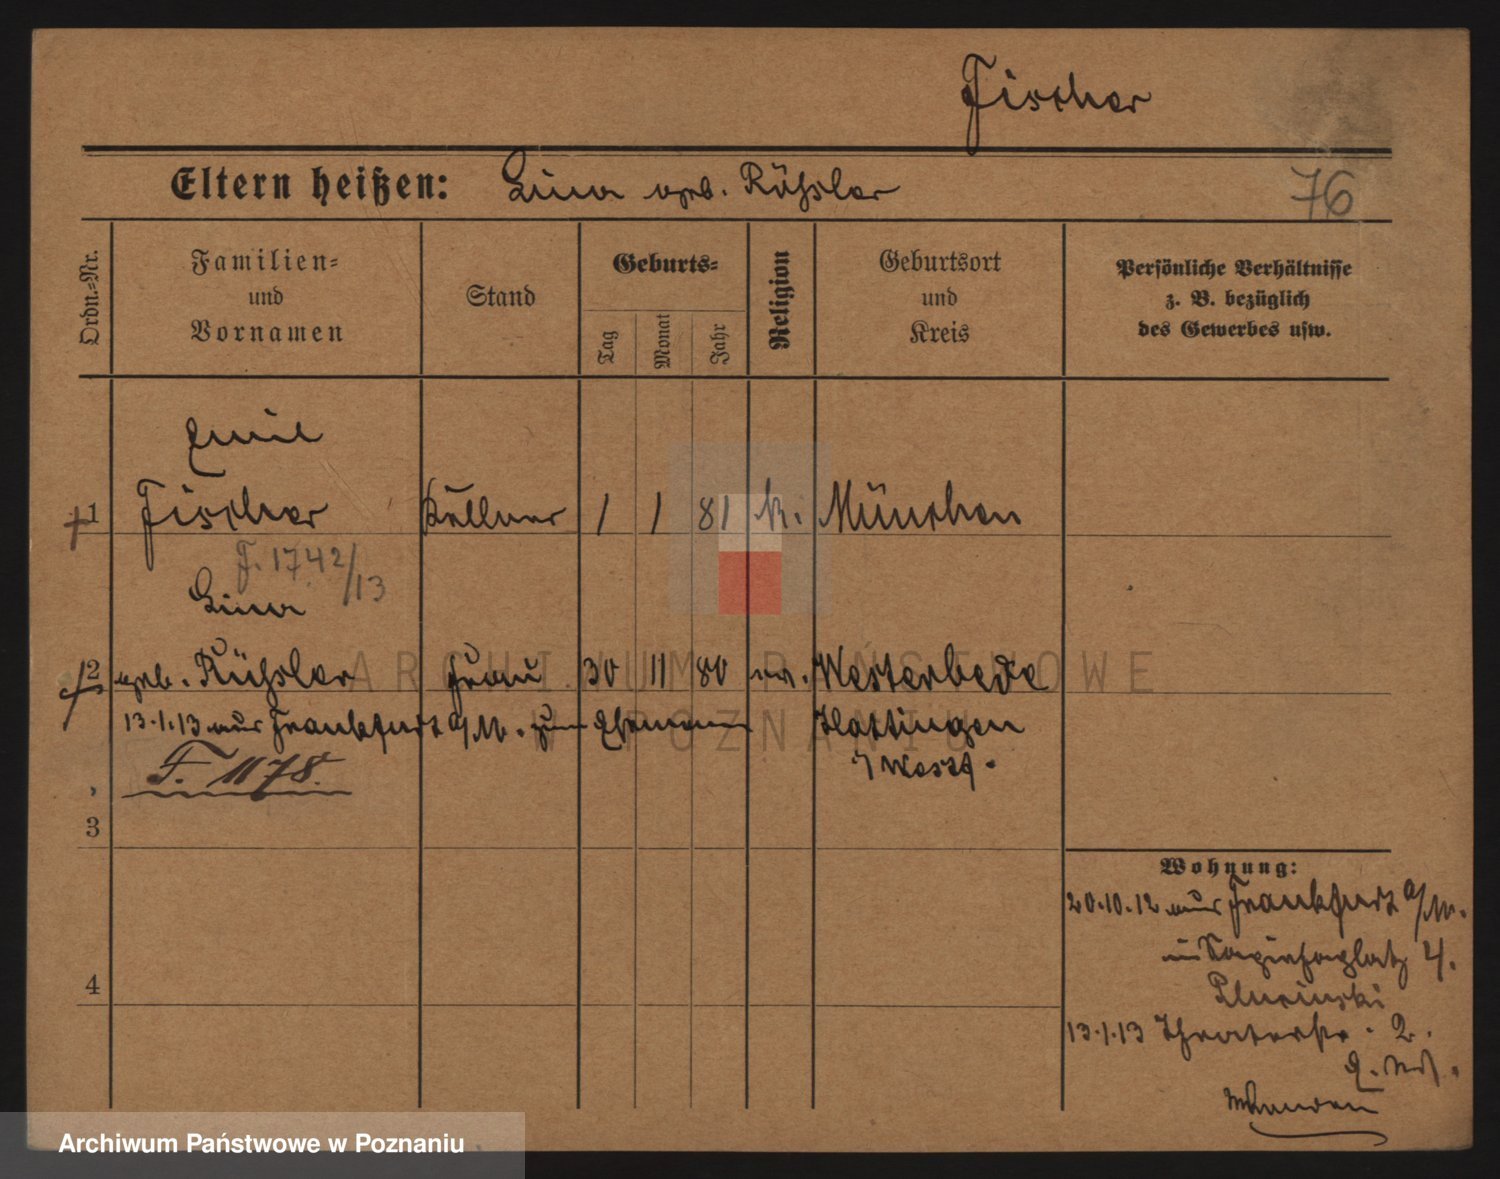 Fischer
Eltern heißen: Lina geb. Rüßler
76
Ordn.-Nr.
Familien-
und
Vornamen
Stand
Geburts-
Tag
Monat
Jahr
Religion
Geburtsort
und
Kreis
Persönliche Verhältnisse
z. B. bezüglich
des Gewerbes usw.
Emil
1 Fischer Kellner 1 1 81 k. München
F. 1742/13
Lina
2 geb. Rüßler Frau 30 11 80 ev. Westerbede
13.1.13 aus Frankfurt a/M. zum Ehemann Hattingen
i/Westf.
F. 1178.
3
4
Wohnung:
20.10.12 aus Frankfurt a/M.
in Sapiehaplatz 4.
13.1.13 Theaterstr. 2.
ARCHIWUM PAŃSTWOWE
W POZNANIU
Archiwum Państwowe w Poznaniu